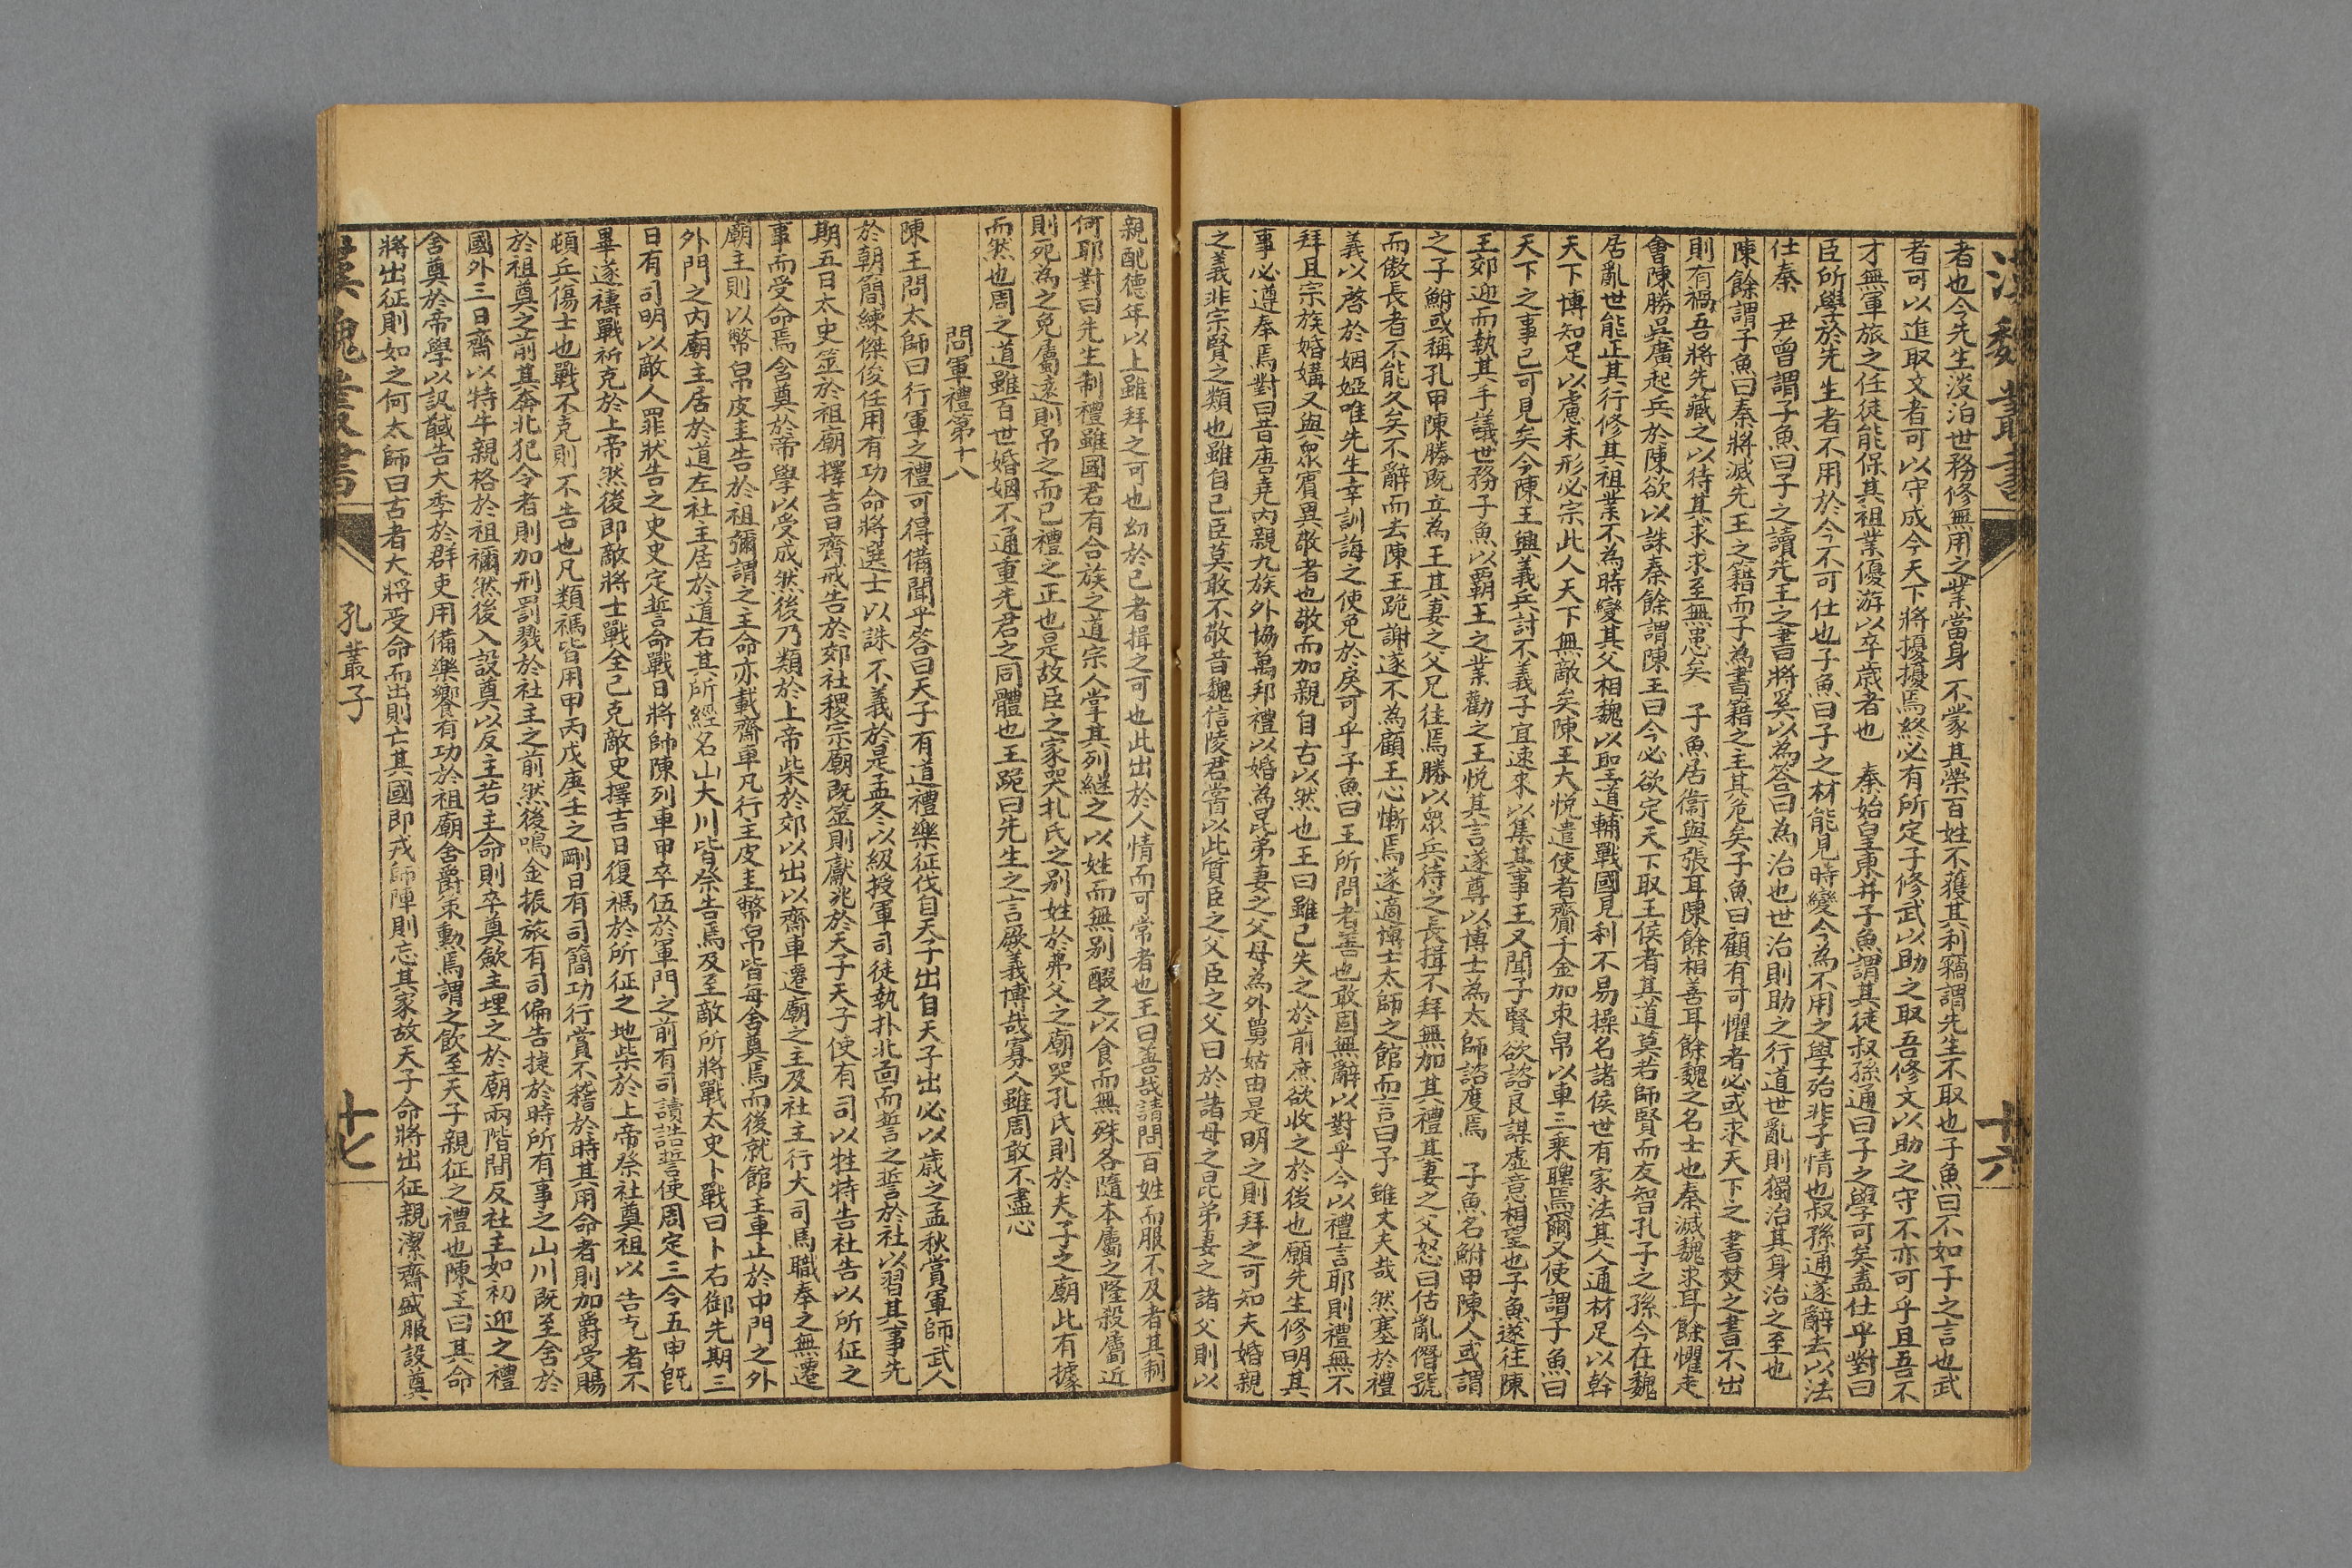 漢魏叢書
十六
者也今先生淡泊世務修無用之業當身不蒙其榮百姓不獲其利竊謂先生不取也子魚曰不如子之言也武
者可以進取文者可以守成今天下將擾擾焉終必有所定子修武以助之取吾修文以助之守不亦可乎且吾不
才無軍旅之任徒能保其祖業優游以卒歲者也　秦始皇東并子魚謂其徒叔孫通曰子之學可矣盍仕乎對曰
臣所學於先生者不用於今不可仕也子魚曰子之材能見時變今為不用之學殆非子情也叔孫通遂辭去以法
仕秦　尹曾謂子魚曰子之讀先王之書將奚以為答曰為治也世治則助之行道世亂則獨治其身治之至也
陳餘謂子魚曰秦將滅先王之籍而子為書籍之主其危矣子魚曰顧有可懼者必或求天下之書焚之書不出
則有禍吾將先藏之以待其求求至無患矣　子魚居衞與張耳陳餘相善耳餘魏之名士也秦滅魏求耳餘懼走
會陳勝吳廣起兵於陳欲以誅秦餘謂陳王曰今必欲定天下取王侯者其道莫若師賢而友智孔子之孫今在魏
居亂世能正其行修其祖業不為時變其父相魏以聖道輔戰國見利不易操名諸侯世有家法其人通材足以幹
天下博知足以慮未形必宗此人天下無敵矣陳王大悅遣使者齎千金加束帛以車三乘聘焉爾又使謂子魚曰
天下之事已可見矣今陳王興義兵討不義子宜速來以集其事王又聞子賢欲諮良謀虛意相望也子魚遂往陳
王郊迎而執其手議世務子魚以霸王之業勸之王悅其言遂尊以博士為太師諮度焉　子魚名鮒甲陳人或謂
之子鮒或稱孔甲陳勝既立為王其妻之父兄往焉勝以眾兵待之長揖不拜無加其禮其妻之父怒曰怙亂僭號
而傲長者不能久矣不辭而去陳王跪謝遂不為顧王心慚焉遂適博士太師之館而言曰予　雖丈夫哉然塞於禮
義以啓於姻婭唯先生幸訓誨之使免於戾可乎子魚曰王所問者善也敢固無辭以對乎今以禮言耶則禮無不
拜且宗族婚媾又與眾賓異敬者也敬而加親自古以然也王曰雖已失之於前庶欲收之於後也願先生修明其
事必遵奉焉對曰昔唐堯內親九族外協萬邦禮以婚為昆弟妻之父母為外舅姑由是明之則拜之可知夫婚親
之義非宗賢之類也雖自己臣莫敢不敬昔魏信陵君嘗以此質臣之父臣之父曰於諸母之昆弟妻之諸父則以
親配德年以上雖拜之可也幼於己者揖之可也此出於人情而可常者也王曰善哉請問百姓而服不及者其制
何耶對曰先生制禮雖國君有合族之道宗人掌其列繼之以姓而無別醊之以食而無殊各隨本屬之隆殺屬近
則死為之免屬遠則吊之而已禮之正也是故臣之家哭孔氏之別姓於弗父之廟哭孔氏則於夫子之廟此有據
而然也周之道雖百世婚姻不通重先君之同體也王跪曰先生之言厥義博哉寡人雖周敢不盡心
問軍禮第十八
陳王問太師曰行軍之禮可得備聞乎答曰天子有道禮樂征伐自天子出自天子出必以歲之孟秋賞軍師武人
於朝簡練傑俊任用有功命將選士以誅不義於是孟冬以級授軍司徒執扑北面而誓之誓於社以習其事先
期五日太史筮於祖廟擇吉日齊戒告於郊社稷宗廟既筮則獻兆於天子天子使有司以牲特告社告以所征之
事而受命焉舍奠於帝學以受成然後乃類於上帝柴於郊以出以齋車遷廟之主及社主行大司馬職奉之無遷
廟主則以幣帛皮圭告於祖彌謂之主命亦載齋車凡行主皮圭幣帛皆每舍奠焉而後就館主車止於中門之外
外門之內廟主居於道左社主居於道右其所經名山大川皆祭告焉及至敵所將戰太史卜戰日卜右御先期三
日有司明以敵人罪狀告之史史定誓命戰日將帥陳列車甲卒伍於軍門之前有司讀誥誓使周定三令五申既
畢遂禱戰祈克於上帝然後即敵將士戰全己克敵史擇吉日復禡於所征之地柴於上帝祭社奠祖以告克者不
頓兵傷士也戰不克則不告也凡類禡皆用甲丙戊庚壬之剛日有司簡功行賞不稽於時其用命者則加爵受賜
於祖奠之前其奔北犯令者則加刑罰戮於社主之前然後鳴金振旅有司偏告捷於時所有事之山川既至舍於
國外三日齋以特牛親格於祖禰然後入設奠以反主若主命則卒奠斂主埋之於廟兩階間反社主如初迎之禮
舍奠於帝學以訊馘告大季於群吏用備樂饗有功於祖廟舍爵策勳焉謂之飲至天子親征之禮也陳王曰其命
將出征則如之何太師曰古者大將受命而出則亡其國即戎師陣則忘其家故天子命將出征親潔齋盛服設奠
漢魏叢書
孔叢子
十七